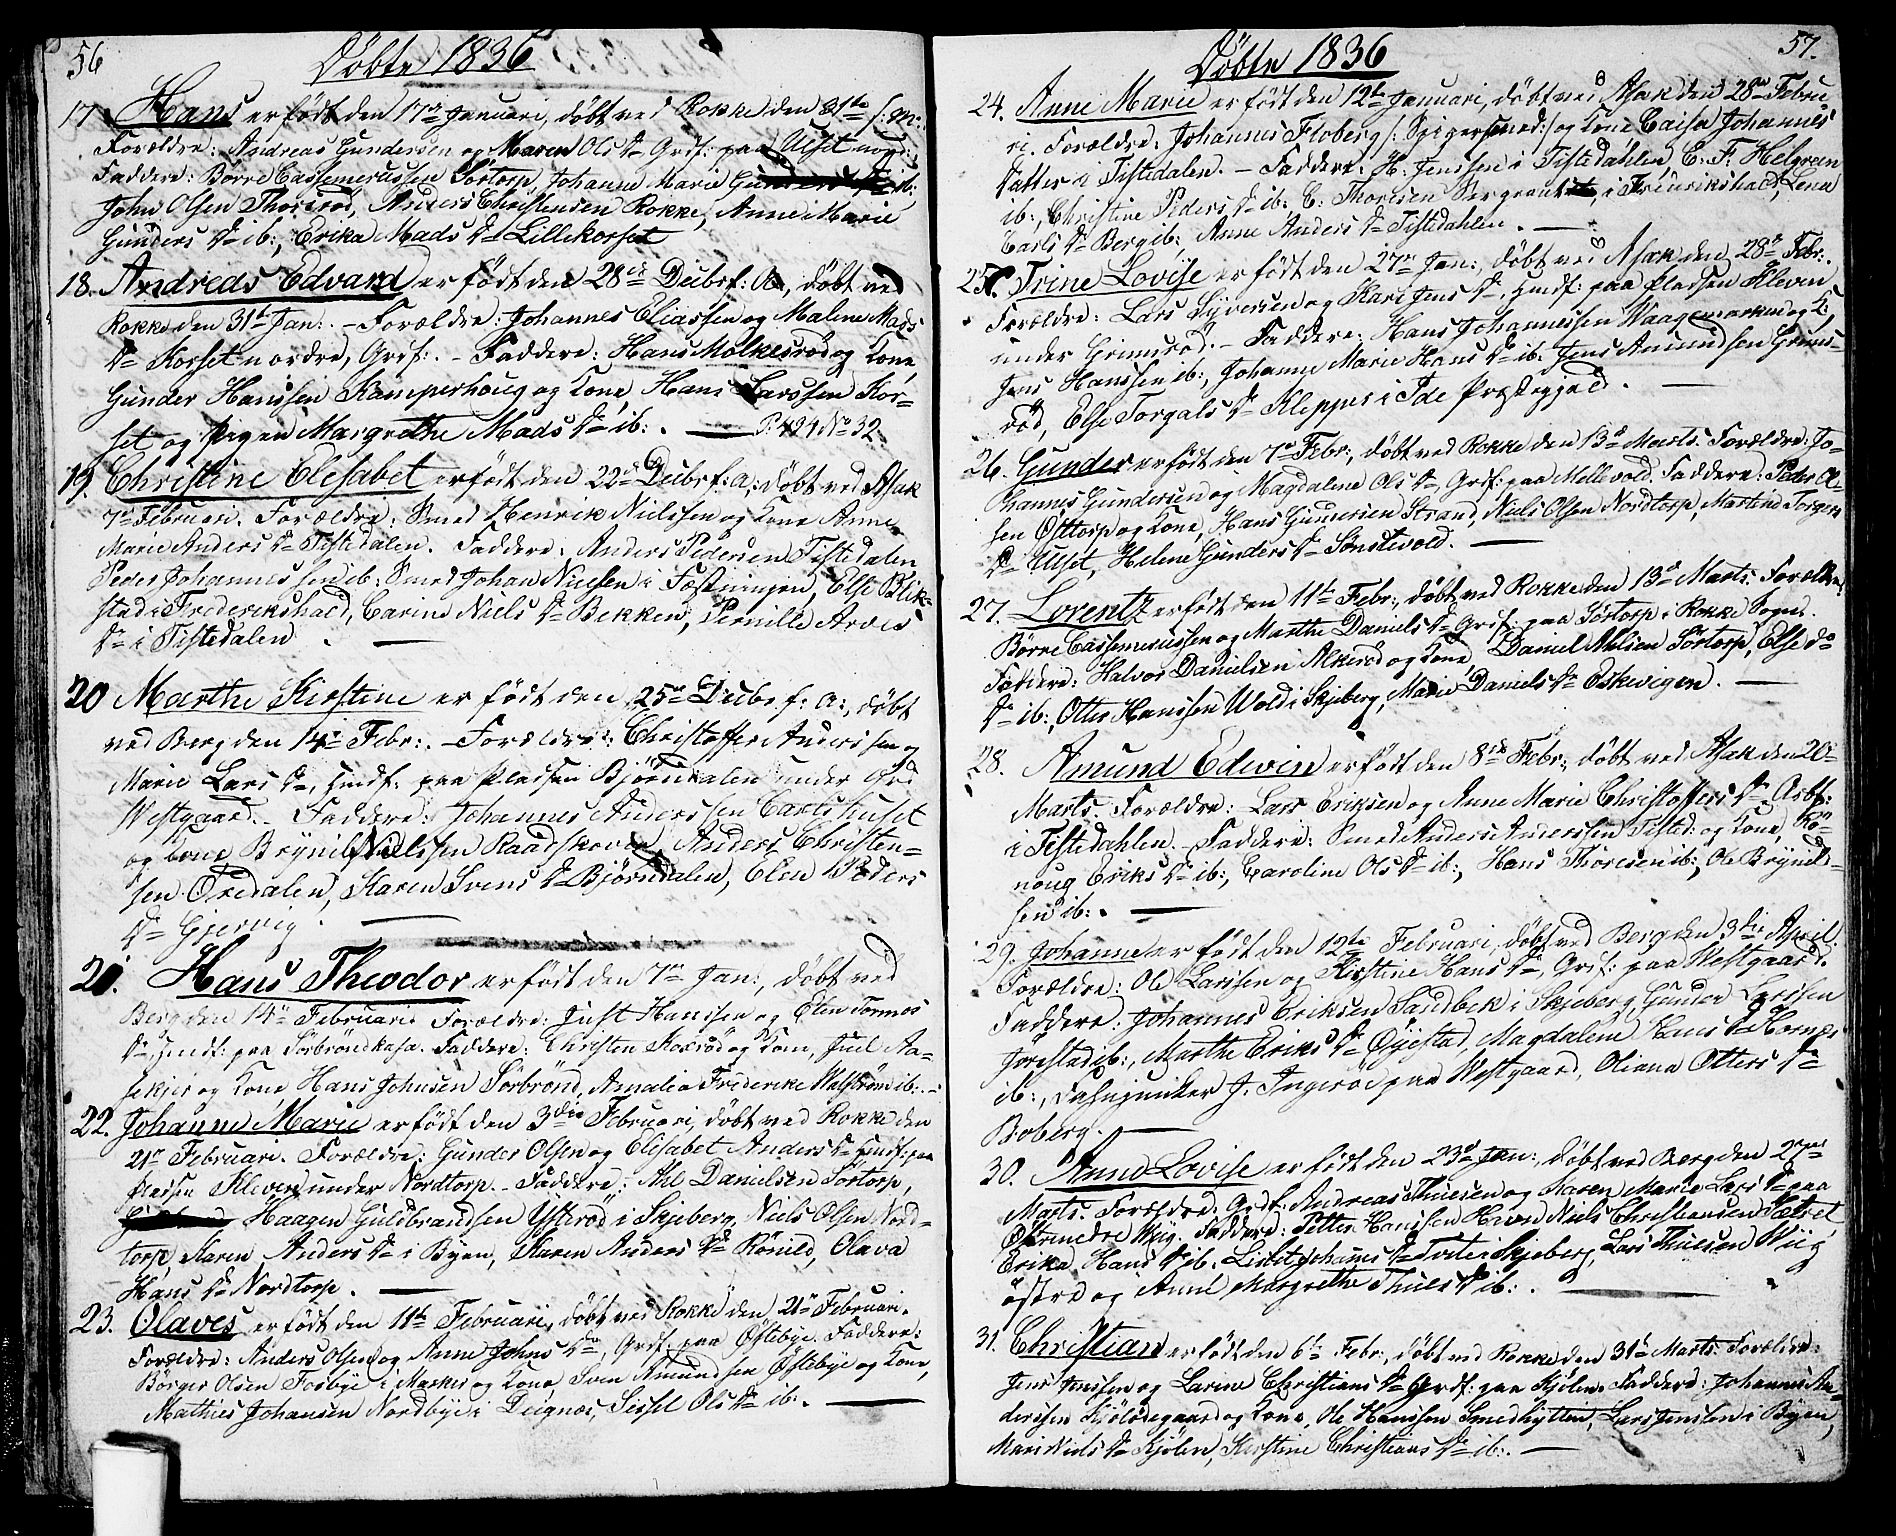 56
Döbte 1836
17. Hans er født den 17de Januari, döbt ved Rokke den 31te
Forældre: Andreas Gundersen og Maren Ols Dr Grdf: paa Ulset
Faddere: Börre Cassemerussen Sörtorp, Johanne Marie ib:
John Olsen Thorsröd, Anders Christensen Rokke, Anne Marie
Gunders Dr ib:, Erika Mads Dr Lillekorset
18. Andreas Edvard er født den 28de Decbr f: A:, döbt ved
Rokke den 31te Jan:. - Forældre: Johannes Eliassen og Maline Mads
Dr Korset nordre, Grdf:. - Faddere: Hans Molkesröd og Kone
Gunder Hanssen Kamperhoug og Kone, Hans Larssen Kor-
set og Pigen Margrethe Mads Dr ib:. P: 494 No 32
19. Christine Elisabet er født den 22de Decbr f: A: döbt ved Asak
7de Februari. Forældre: Smed Henrik Nielssen og Kone Anne
Marie Anders Dr Tistedalen. Faddere: Anders Pedersen Tistedalen
Peder Johannessen ib: Smed Johan Nielsen i Fæstningen, Else Blik-
stad i Frederikshald, Carine Niels Dr Bekken, Pernille Arves
Dr i Tistedalen.
20 Marthe Kirstine er født den 25de Decbr f: A:, döbt
ved Berg den 14de Febr:. - Forældre: Christoffer Anderssen og
Marie Lars Dr, Huusf: paa Pladsen Björndalen under Grd
Westgaard. - Faddere: Johannes Anderssen Carlshuset
og Kone Brynild Nielssen Raadskoven, Anders Christen-
sen Oredalen, Karen Svens Dr Björndalen, Elen Peders
Dr Gjervig.
21. Hans Theodor er født den 7de Jan:, döbt ved
Berg den 14de Februari. Forældre: Just Hanssen og Elen Tormos
Dr, Huusf: paa Sörbröndkasa. Faddere: Christen Roxröd og Kone, Juel Aa-
sekjer og Kone, Hans Johnsen Sörbrönd, Amalia Frederike Walström ib:
22. Johanne Marie er født den 3die Februari, döbt ved Rokke den
21de Februari. Forældre: Gunder Olsen og Elisabet Anders Dr Huusf: paa
Pladsen Kleven under Nordtorp. - Faddere: Ale Danielsen Sörtorp,
Haagen Guldbrandsen Ysteröd i Skjeberg, Niels Olsen Nord-
torp, Karen Anders Dr i Byen, Karen Anders Dr Rönild, Olava
Hans Dr Nordtorp.
23. Olaves er født den 11te Februari, döbt ved Rokke den 21de Februari.
Forældre: Anders Olsen og Anne Johns Dr, Grdf. paa Östebye. Faddere:
Börger Olsen Fosbye i Marker og Kone Sven Amundsen Östebye og Kone,
Mathies Johansen Nordbye i Deignes, Sissel Ols Dr ib:.
57.
Döbte 1836
24. Anne Marie er født den 12te Januari, döbt ved Asak den 28de Febru
ri. Forældre: Johannes Floberg /: Spigersmed:/ og Kone Caisa Johannes
Datter i Tistedalen. - Faddere: H. Jenssen i Tistedahlen, E: F. Helgreen
ib:, Christine Peders Dr ib: E: Thoresen Sergeant i Frederikshald, Lena
Carls Dr Berg ib:, Anne Anders Dr Tistedahlen.
25. Trine Lovise er født den 27de Jan:, döbt ved Asak den 28de Febr:.
Forældre: Lars Syversen og Kari Jens Dr, Huusf: paa Pladsen Kleven
under Grimsröd. - Faddere: Hans Johannessen Waagemarken og K:,
Jens Hanssen ib:, Johanne Marie Hans Dr ib: Jens Amundsen Grims-
röd, Else Torgals Dr Kleppus i Ide Præstegjeld.
26. Gunder er født den 7de Febr:, döbt ved Rokke den 13de Marts. Forældre: Jo-
hannes Gundersen og Magdalene Ols Dr, Grdf: paa Mellevold. Faddere: Peder Ol-
sen Osttorp og Kone, Hans Gundersen Strand, Niels Olsen Nordtorp, Martine Torgers
Dr Ulset, Helene Gunders Dr Sönstevold.
27. Lorentz er født den 11te Febr:, döbt ved Rokke den 13de Marts. Forældre
Börre Cassemerussen og Marthe Daniels Dr Grdf: paa Sörtorp i Rokke Sogn.
Faddere: Halvor Danielsen Alkeröd og Kone, Daniel Nilsen Sörtorp, Else do
Dr ib:, Otter Hanssen Wold i Skjeberg, Marie Daniels Dr Eskevigen.
28. Amund Edwin er født den 8de Febr:, döbt ved Asak den 20de
Marts. Forældre: Lars Eriksen og Anne Marie Christoffers Dr Arbf:
i Tistedahlen. - Faddere: Smed Anders Anderssen Tisted: og Kone, Rö-
noug Eriks Dr ib:, Caroline Ols Dr ib:, Hans Thoresen ib:, Ole Brynild-
sen ib:.
29. Johanne er født den 12te Februari, döbt ved Berg den 3die April.
Forældre: Ole Larssen og Kirstine Hans Dr, Grdf: paa Westgaard.
Faddere: Johannes Eriksen Sandbek i Skjeberg, Gunder Larssen
Jörstad ib:, Marthe Eriks Dr Öyestad, Magdalene Hans Dr Hornes
ib:, Fahnjunker J. Ingeröd paa Westgaard, Oliana Otters Dr
Boberg.
30. Anne Lovise er født den 23de Jan:, döbt ved Berg den 27de
Marts. Forældre: Grdf: Andreas Thuesen og Karen Marie Lars Dr paa
Östre Wiig. Faddere: Petter Hanssen Niels Christiansen Sætret
Erika Hans Dr ib: Lisbet Johans Dr Tvete i Skjeberg, Lars Thuesen Wiig
östre og Anne Margrethe Thues Dr ib:.
31. Christian er født den 6te Febr:, döbt ved Rokke den 31te Marts. Forældre:
Jens Jenssen og Larine Christians Dr Grdf: paa Kjölen. Faddere: Johannes An-
derssen Kjölödegaard og Kone, Ole Hanssen Smedhytten, Lars Jenssen i Byen,
Mari Niels Dr Kjölen, Kirstine Christians Dr ib:.